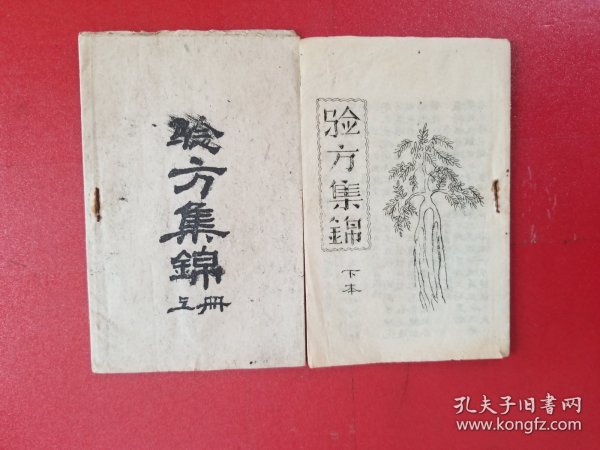 验方集錦
上册
验方集錦
下本
孔夫子旧书网
www.kongfz.com